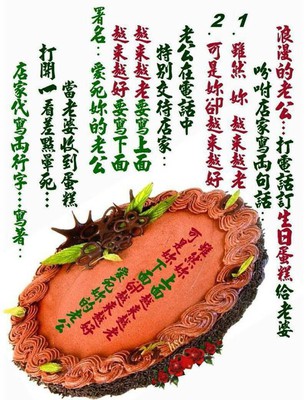 浪漫的老公…打電話訂生日蛋糕給老婆
吩咐店家寫兩句話…
1.雖然 妳 越來越老
2.可是妳卻越來越好
老公在電話中
特別交待店家…
越來越老要寫上面
越來越好要寫下面
署名：愛死妳的老公
當老婆收到蛋糕
打開一看差點暈死…
店家代寫兩行字…寫著…
雖然妳上面越來越老
可是妳下面越來越好
愛死妳的老公